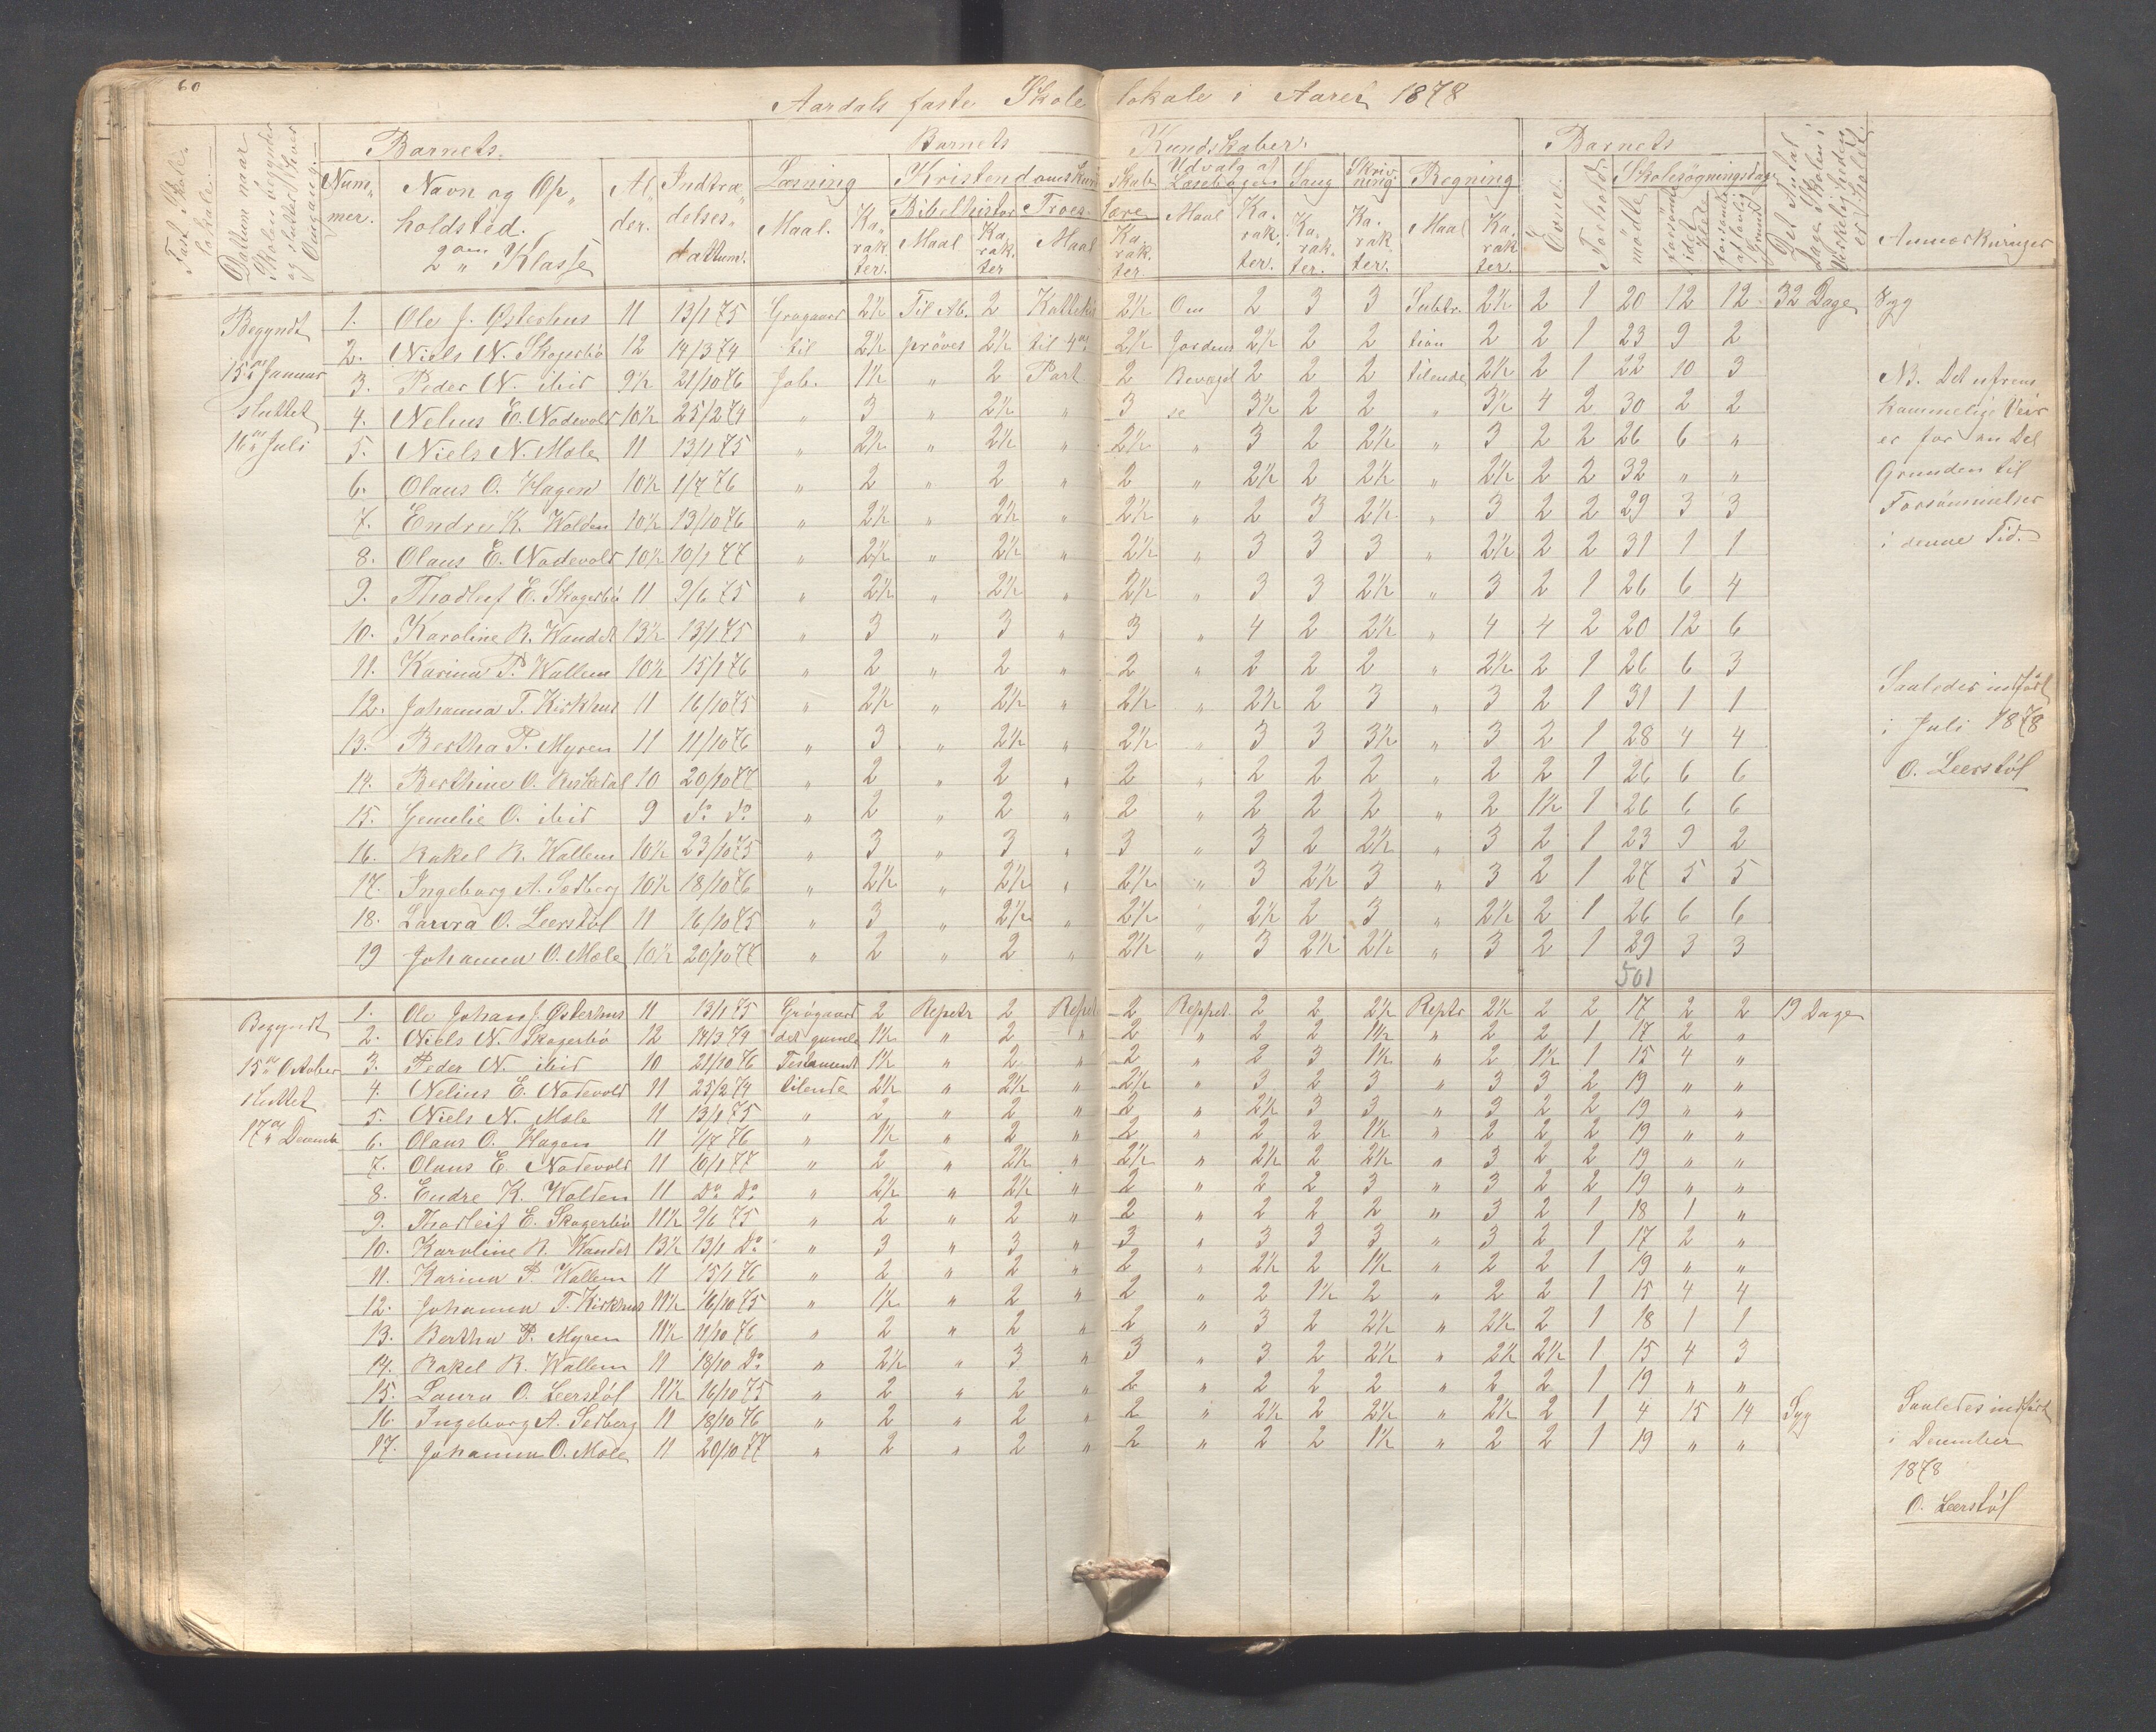 60
Aardals faste Skole lokale i Aaret 1878
Fast Skolelokale.
Dattum naar Skolen begynder og slutter hver Omgang.
Barnets
Num„mer.
Navn og Op„holdsted.
2den Klasse
Al„der.
Indtræ„delses„dattum.
Barnets Kundskaber
Læsning
Maal.
Karakter.
Kristendomskundskab
Bibelhistorie
Maal
Karakter
Troeslære
Maal
Karakter
Udvalg af Læsebogen
Maal
Karakter.
Sang
Karakter.
Skrivning
Karakter.
Regning
Maal
Karakter.
Barnets
Evne.
Forhold
Skolesøgningsdage
mødte
forsømte i det Hele
forsømte af lovlig Grund
Det Antal Dage Skolen i Virkeligheden er holdt
Anmærkninger
Begyndt
15de Januar
sluttet
16de Juli
1. Ole J. Østerhus 11 13/1 75 Grøgaard 2½ Til Ab. 2 2½ Om 2 3 3 Subtr. 2½ 2 1 20 12 12 32 Dage Syg
2. Niels N. Skogerbö 12 14/3 74 til 2½ prøves 2½ til 4de 2½ Jordens 2½ 2 2 tion 2 2 1 23 9 2
3. Peder N. ibid 9½ 21/10 76 Job. 1½ „ 2 Part 2 Bevægel 2 2 2 tilende 2½ 2 1 22 10 3
4. Nelius E. Nodevold 10½ 25/2 74 „ 3 „ 2½ „ 3 se 3½ 2 2 „ 3½ 4 2 30 2 2
5. Niels N. Mæle 11 13/1 75 „ 2½ „ 2½ „ 2½ „ 3 2 2½ „ 3 2 2 26 6 „
6. Olaus O. Hagen 10½ 1/7 76 „ 2 „ 2 „ 2 „ 2½ 2 2½ „ 2½ 2 2 32 „ „
7. Endre K. Wolden 10½ 13/10 76 „ 2½ „ 2½ „ 2½ „ 2 3 2½ „ 3 2 2 29 3 3
8. Olaus E. Nodevold 10½ 10/1 77 „ 2½ „ 2½ „ 2½ „ 3 3 3 „ 2½ 2 2 31 1 1
9. Thorleif E. Skogerbö 11 9/6 75 „ 2½ „ 2½ „ 2½ „ 3 3 2½ „ 3 2 1 26 6 4
10. Karoline R. Wander 13½ 13/1 75 „ 3 „ 3 „ 3 „ 4 2 2½ „ 4 4 2 20 12 6
11. Karina P. Wallem 10½ 15/1 76 „ 2 „ 2 „ 2 „ 2 2 2 „ 2½ 2 1 26 6 3
12. Johanna T. Kirkhus 11 16/10 75 „ 2½ „ 2½ „ 2½ „ 2½ 2 3 „ 3 2 1 31 1 1
13. Bertha P. Myren 11 11/10 76 „ 3 „ 2½ „ 2½ „ 3 3 3½ „ 3 2 1 28 4 4
14. Berthine O. Riskedal 10 20/10 77 „ 2 „ 2 „ 2 „ 2 2 2 „ 2 2 1 26 6 6
15. Gemelie O. ibid 9 do do „ 2 „ 2 „ 2 „ 2 2 2 „ 2 1½ 1 26 6 6
16. Rakel R. Wallem 10½ 23/10 75 „ 3 „ 3 „ 3 „ 3 2 2½ „ 3 2 1 23 9 2
17. Ingeborg A. Sedberg 10½ 18/10 76 „ 2½ „ 2½ „ 2½ „ 3 2½ 3 „ 3 2 1 27 5 5
18. Laura O. Leerstöl 11 16/10 75 „ 3 „ 2½ „ 2½ „ 2½ 2 3 „ 2½ 2 1 26 6 6
19 Johanna O. Mæle 10½ 20/10 77 „ 2 „ 2 „ 2½ „ 3 2½ 2½ „ 3 2 1 29 3 3
501
NB. Det ufrem
kommelige Veir
er for en Del
Grunden til
Forsömmelser
i denne Tid.
Saaledes indfört
i Juli 1878
O. Leerstöl
Begyndt
15de October
sluttet
17de Decemb
1. Ole Johan J. Østerhus 11 13/1 75 Grøgaard 2 Repetr 2 Repet 2 Reppet. 2 2 2½ Reptr 2½ 2 2 17 2 2 19 Dage
2. Niels N. Skogerbö 12 14/3 74 det gamle 1½ „ 2 „ 2 „ 2 2 1½ „ 2 2 1 17 2 „
3. Peder N. ibid 10 21/10 76 Testament 1½ „ 2 „ 2 „ 2 3 1½ „ 2 1½ 1 15 4 „
4. Nelius E. Nodevold 11 25/2 74 tilende 2½ „ 2½ „ 2½ „ 3 2 3 „ 3 3 2 19 „ „
5. Niels N. Mæle 11 13/1 75 „ 2 „ 2 „ 2 „ 2½ 3 3 „ 3 2 2 19 „ „
6. Olaus O. Hagen 11 1/7 76 „ 1½ „ 2 „ 2 „ 2 2 1½ „ 2 2 2 19 „ „
7. Olaus E. Nodevold 11 10/1 77 „ 2 „ 2½ „ 2½ „ 2½ 2 2½ „ 3 2 2 19 „ „
8. Endre K. Wolden 11 Do Do „ 2½ „ 2½ „ 2 „ 2 2 3 „ 3 2 2 19 „ „
9. Thorleif E. Skogerbö 11½ 9/6 75 „ 2 „ 2 „ 2 „ 2 2 2 „ 3 2 1 18 1 „
10. Karoline R. Wander 13½ 13/1 Do „ 3 „ 3 „ 3 „ 3 3 3 „ 3 2 1 17 2 „
11. Karina P. Wallem 11 15/1 76 „ 2 „ 2 „ 2 „ 2½ 2 1½ „ 2 2 1 19 „ „
12. Johanna T. Kirkhus 11½ 16/10 75 „ 1½ „ 2 „ 2 „ 2 1½ 2 „ 2 2 1 15 4 4
13. Bertha P. Myren 11½ 11/10 76 „ 2 „ 2 „ 2 „ 3 2 2½ „ 2½ 2 1 18 1 1
14. Rakel R. Wallem 11 18/10 Do „ 2½ „ 3 „ 3 „ 3 2 2½ „ 2½ 2½ 1 15 4 3
15. Laura O. Leerstöl 11½ 16/10 75 „ 2 „ 2 „ 2 „ 2 2 2 „ 2 2 1 19 „ „
16. Ingeborg A. Sedberg 11 18/10 76 „ 2 „ 2 „ 2 „ 2½ 2 2½ „ 2½ 2 1 4 15 14 Syg
17. Johanna O. Mæle 11 20/10 77 „ 2 „ 2 „ 2 „ 2 2 1½ „ 2 2 1 19 „ „
Saaledes indfört
i December
1878
O. Leerstöl